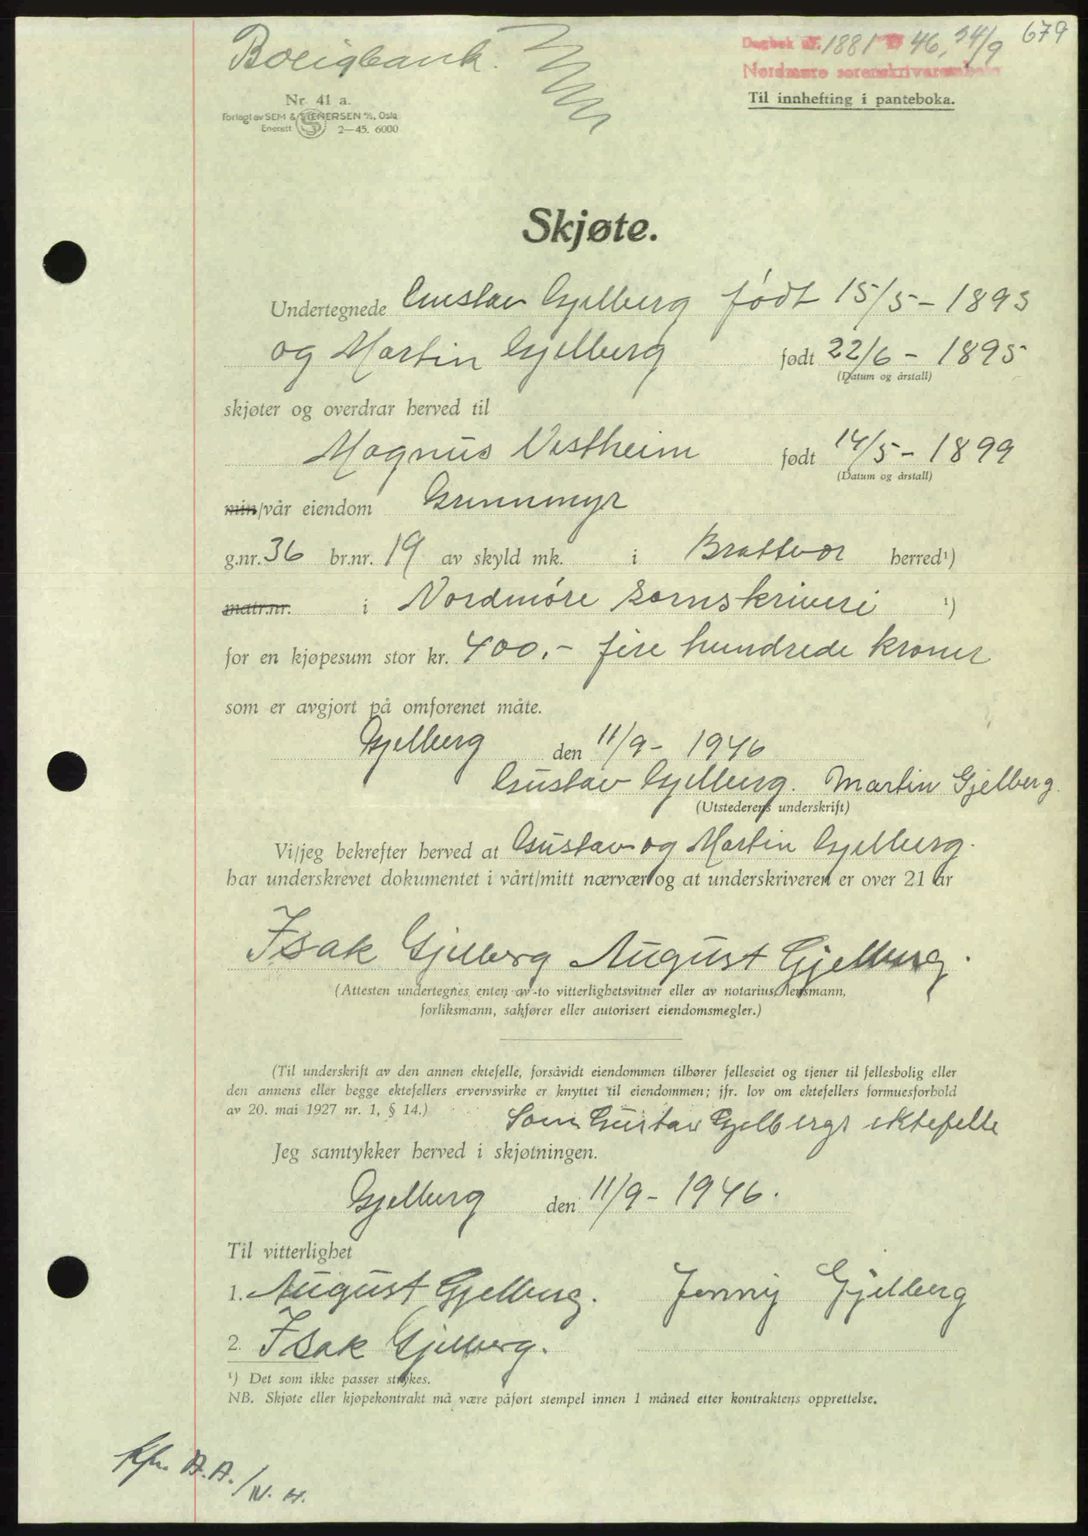 679
Boligbank.
Dagbok nr. 1881 19 46, 24/9
Nordmøre sorenskriverembete
Til innhefting i panteboka.
Nr. 41 a.
Forlagt av SEM & STENERSEN A/S, Oslo
Enerett 2—45. 6000
Skjøte.
Undertegnede Gustav Gjelberg født 15/5 - 1893
og Martin Gjelberg født 22/6 - 1895
(Datum og årstall)
skjøter og overdrar herved til
Magnus Vestheim født 14/5 - 1899
(Datum og årstall)
min/vår eiendom Grunnmyr
g.nr. 36 br.nr. 19 av skyld mk. i Brattvær herred¹)
matr.nr. i Nordmøre Sornskriveri ¹)
for en kjøpesum stor kr. 400.- fire hundrede kroner
som er avgjort på omforenet måte.
Gjelberg den 11/9 - 1946
Gustav Gjelberg. Martin Gjelberg.
(Utstederens underskrift)
Vi/jeg bekrefter herved at Gustav og Martin Gjelberg.
har underskrevet dokumentet i vårt/mitt nærvær og at underskriveren er over 21 år
Isak Gjelberg August Gjelberg.
(Attesten undertegnes enten av to vitterlighetsvitner eller av notarius, lensmann,
forliksmann, sakfører eller autorisert eiendomsmegler.)
(Til underskrift av den annen ektefelle, forsåvidt eiendommen tilhører felleseiet og tjener til fellesbolig eller
den annens eller begge ektefellers ervervsvirke er knyttet til eiendommen; jfr. lov om ektefellers formuesforhold
av 20. mai 1927 nr. 1, § 14.)
Som Gustav Gjelbergs ektefelle
Jeg samtykker herved i skjøtningen.
Gjelberg den 11/9 - 1946.
Til vitterlighet
1. August Gjelberg. Jenny Gjelberg
2. Isak Gjelberg.
¹) Det som ikke passer strykes.
NB. Skjøte eller kjøpekontrakt må være påført stempel innen 1 måned etter kontraktens opprettelse.